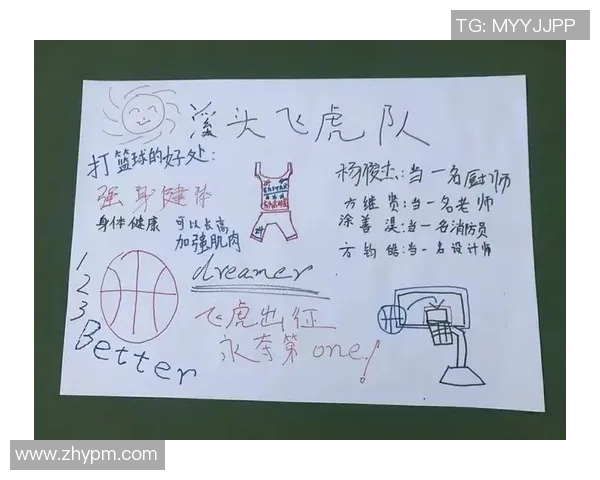 TG: MYYJJPP
溪头飞虎队
打篮球的好处:
强身健体
身体健康 可以长高
加强肌肉
杨俊杰:当一名厨师
方继贤:当一名老师
涂善湜:当一名消防员
方钧锴:当一名设计师
dreamer
飞虎出征
永夺第one!
1
2
3
Better
www.zhypm.com